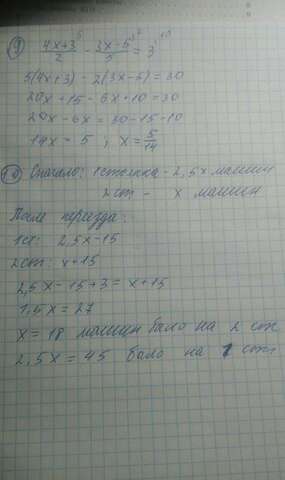 9) (4x+3)/2 ⁵ - (3x-5)/5 ² = 3 ¹⁰
5(4x+3) - 2(3x-5) = 30
20x + 15 - 6x + 10 = 30
20x - 6x = 30 - 15 - 10
14x = 5 ; x = 5/14
10) Сначало: 1 стоянка - 2,5x машин
2 ст - x машин
После переезда:
1 ст: 2,5x-15
2 ст: x+15
2,5x - 15 + 3 = x + 15
1,5x = 27
x = 18 машин было на 2 ст
2,5x = 45 было на 1 ст